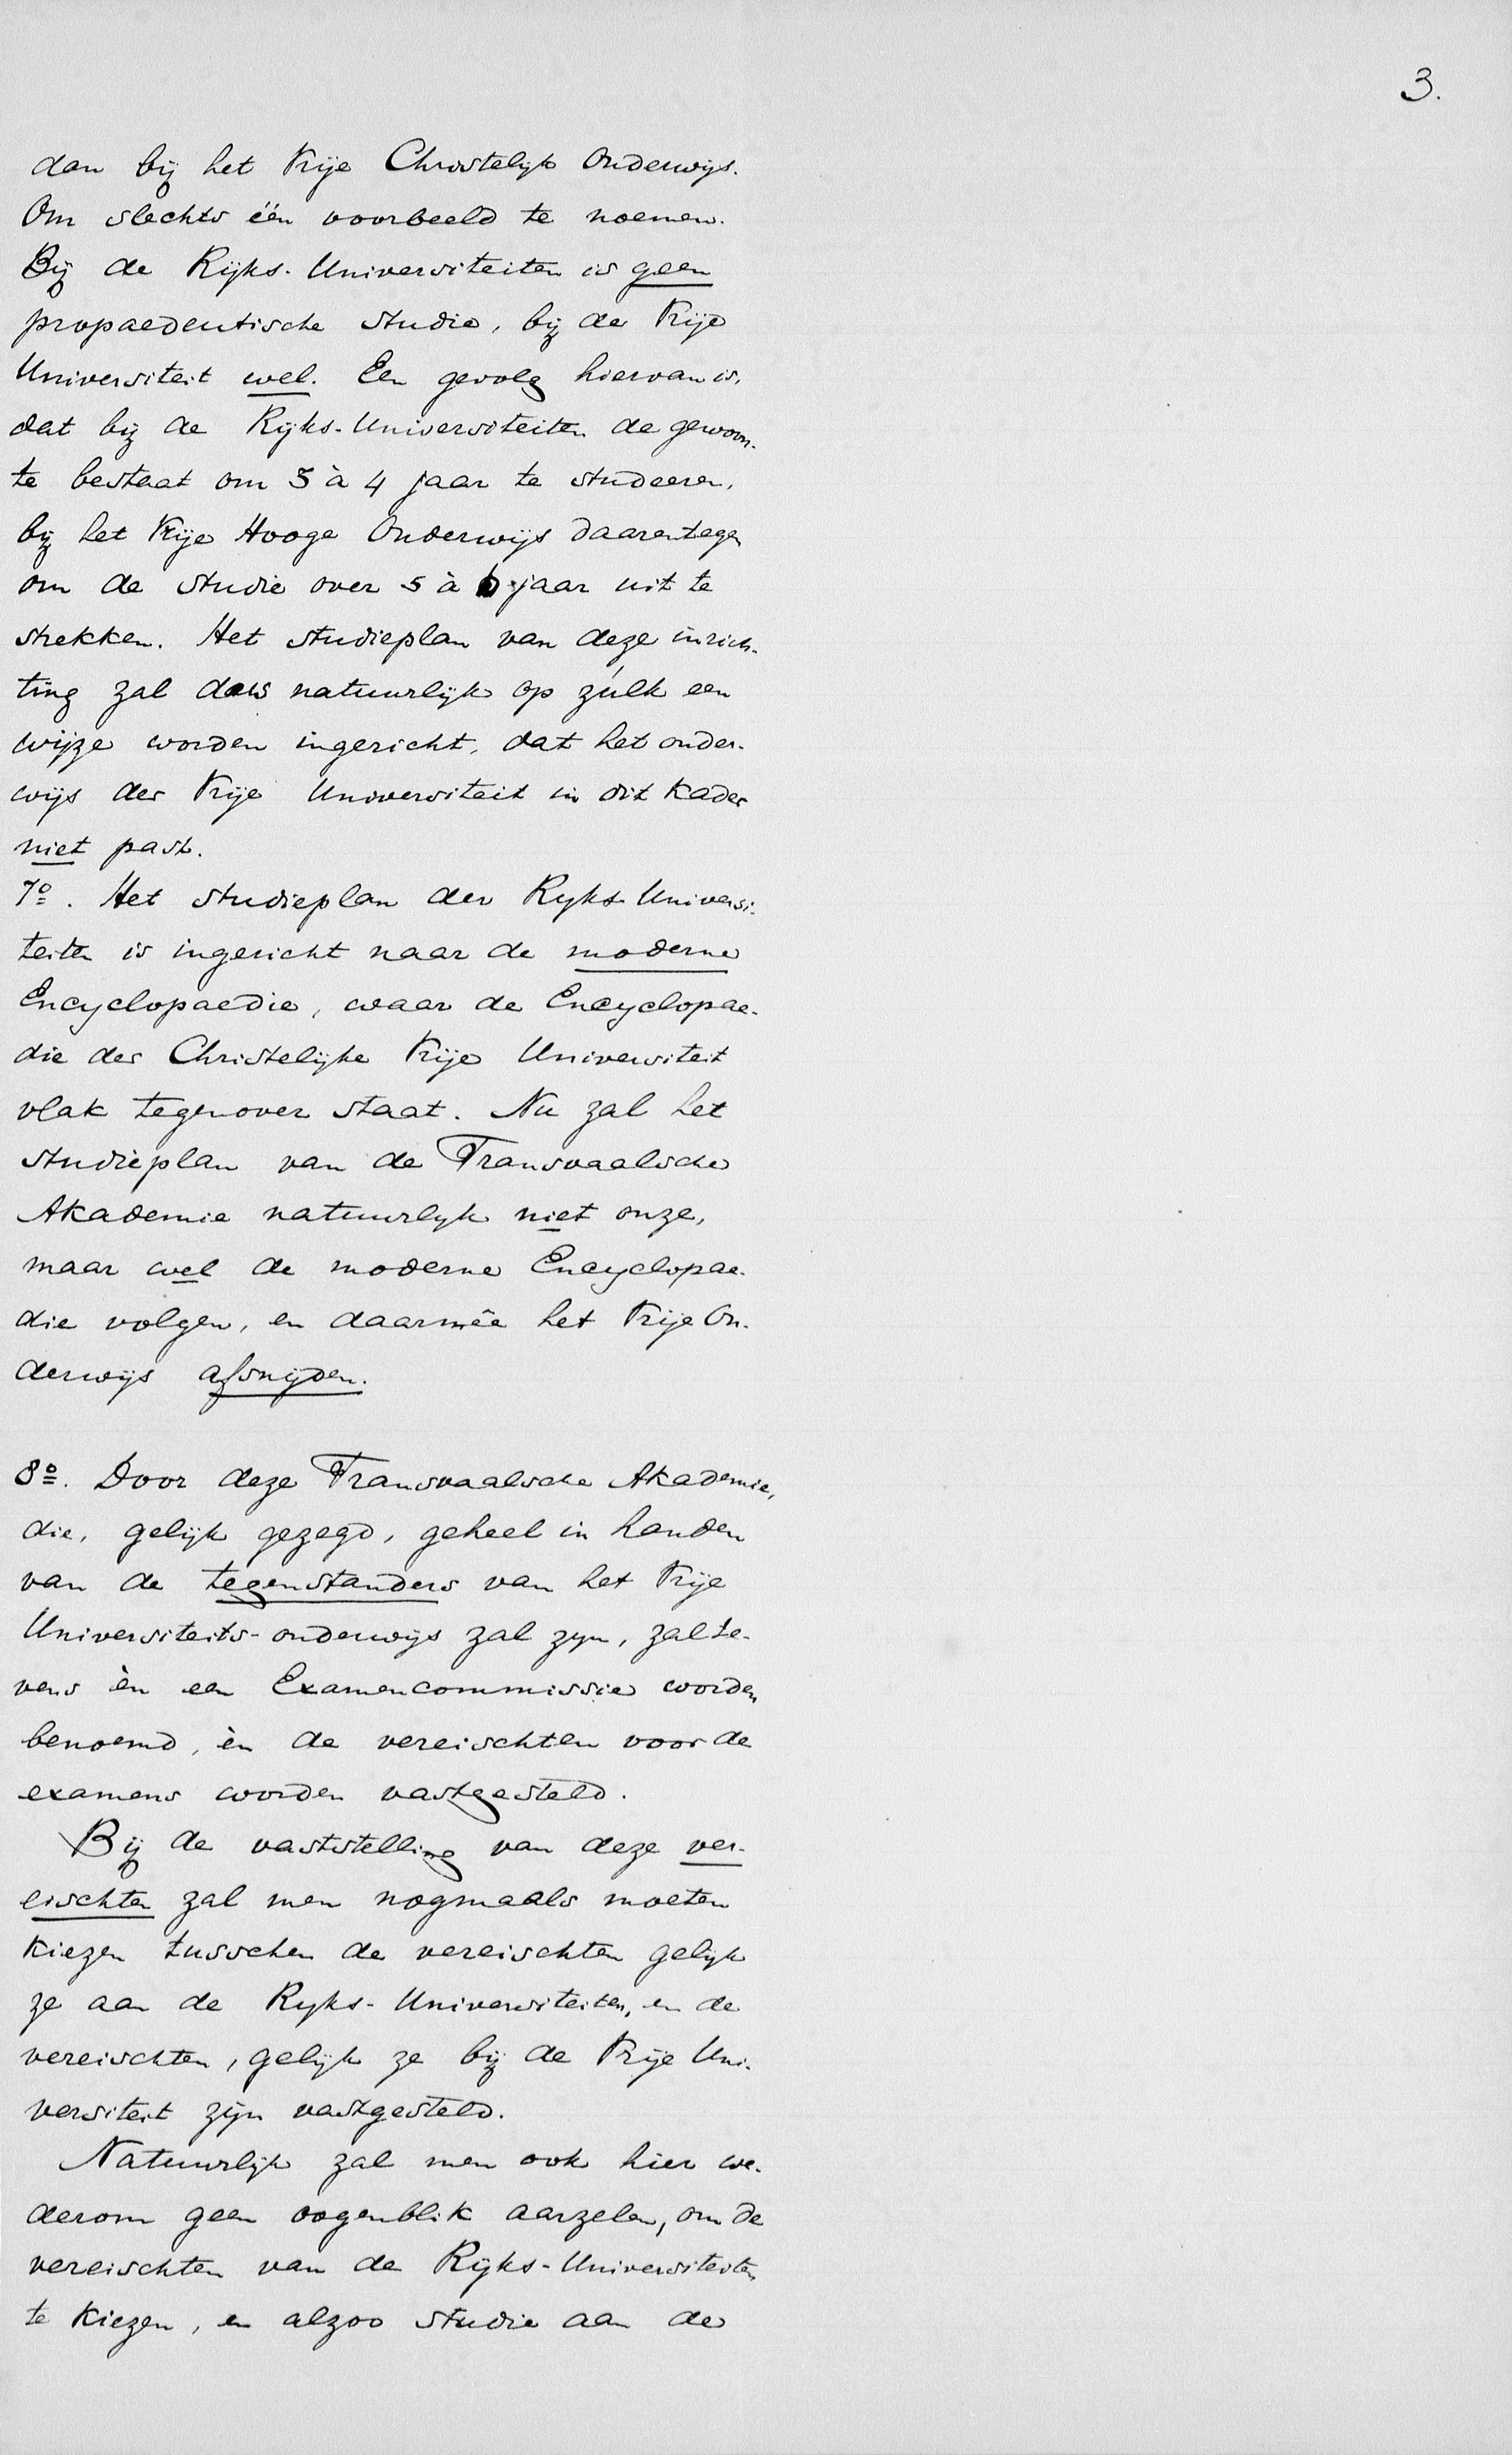 3.
dan bij het Vrije Christelijk Onderwijs.
Om slechts één voorbeeld te noemen.
Bij de Rijks-Universiteiten is geen
propaedeutische studie, bij de Vrije
Universiteit wel. Een gevolg hiervan is,
dat bij de Rijks-Universiteiten de gewoon-
te bestaat om 3 à 4 jaar te studeeren,
bij het Vrije Hooge Onderwijs daarentegen
om de studie over 5 à 6 jaar uit te
strekken. Het studieplan van deze inrich-
ting zal dus natuurlijk op zúlk een
wijze worden ingericht, dat het onder-
wijs der Vrije Universiteit in dit kader
niet past.
7º. Het studieplan der Ryks-Universi-
teiten is ingericht naar de moderne
Encyclopaedie, waar de Encyclopae-
die der Christelijke Vrije Universiteit
vlak tegenover staat. Nu zal het
studieplan van de Transvaalsche
Akademie natuurlyk niet onze,
maar wel de moderne Encyclopae-
die volgen, en daarmêe het Vrije On-
derwijs afsnijden.
8º. Door deze Transvaalsche Akademie,
die, gelijk gezegd, geheel in handen
van de tegenstanders van het Vrije
Universiteits-onderwijs zal zyn, zal te-
vens èn een Examencommissie worden
benoemd, èn de vereischten voor de
examens worden vastgesteld.
Bij de vaststelling van deze ver-
eischten zal men nogmaals moeten
kiezen tusschen de vereischten gelijk
ze aan de Ryks-Universiteiten, en de
vereischten, gelijk ze bij de Vrije Uni-
versiteit zijn vastgesteld.
Natuurlijk zal men ook hier we-
derom geen oogenblik aarzelen, om de
vereischten van de Rijks-Universiteiten
te kiezen, en alzoo studie aan de